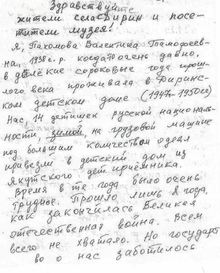 Здравствуйте
жители села Дирин и посе-
тители музея!
Я, Пахомова Валентина
на, 1938 г. р. когда-то очень давно,
в далёкие сороковые года прош-
лого века проживала в Дирин-
ском детском доме (1947-1950 гг)
Нас, 14 детишек русской националь-
ности, зимой, на грузовой машине
под большим количеством одеял
привезли в детский дом из
Якутского дет. приёмника.
Время в те года было очень
трудное. Прошло лишь 2 года,
как закончилась Великая
отечественная война. Всем
всего не хватало. Но государст
во о нас заботилось